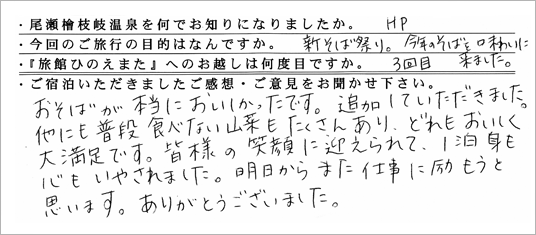 ・尾瀬檜枝岐温泉を何でお知りになりましたか。 HP
・今回のご旅行の目的はなんですか。 新そば祭り。今年のそばを口味わいに
・『旅館ひのえまた』へのお越しは何度目ですか。 3回目 来ました。
・ご宿泊いただきましたご感想・ご意見をお聞かせ下さい。
おそばが本当においしかったです。追加していただきました。
他にも普段食べない山菜もたくさんあり、どれもおいしく
大満足です。皆様の笑顔に迎えられて、1泊身も
心もいやされました。明日からまた仕事に励もうと
思います。ありがとうございました。